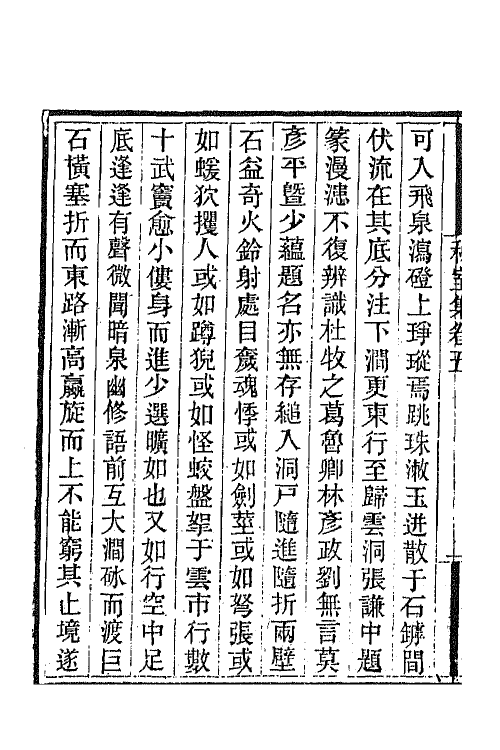 可入飛泉瀉磴上琤瑽焉跳珠漱玉迸散于石罅間
伏流在其底分注下澗更東行至歸雲洞張謙中題
篆漫漶不復辨識杜牧之葛魯卿林彥政劉無言莫
彥平曁少蘊題名亦無存縋入洞戶隨進隨折兩壁
石益奇火鈴射處目奫魂悸或如劍莖或如弩張或
如蝯狖攫人或如蹲猊或如怪蛟盤拏于雲市行數
十武竇愈小僂身而進少選曠如也又如行空中足
底逢逢有聲微聞暗泉幽修語前互大澗砅而渡巨
石橫塞折而東路漸高蠃旋而上不能窮其止境遂
集卷五